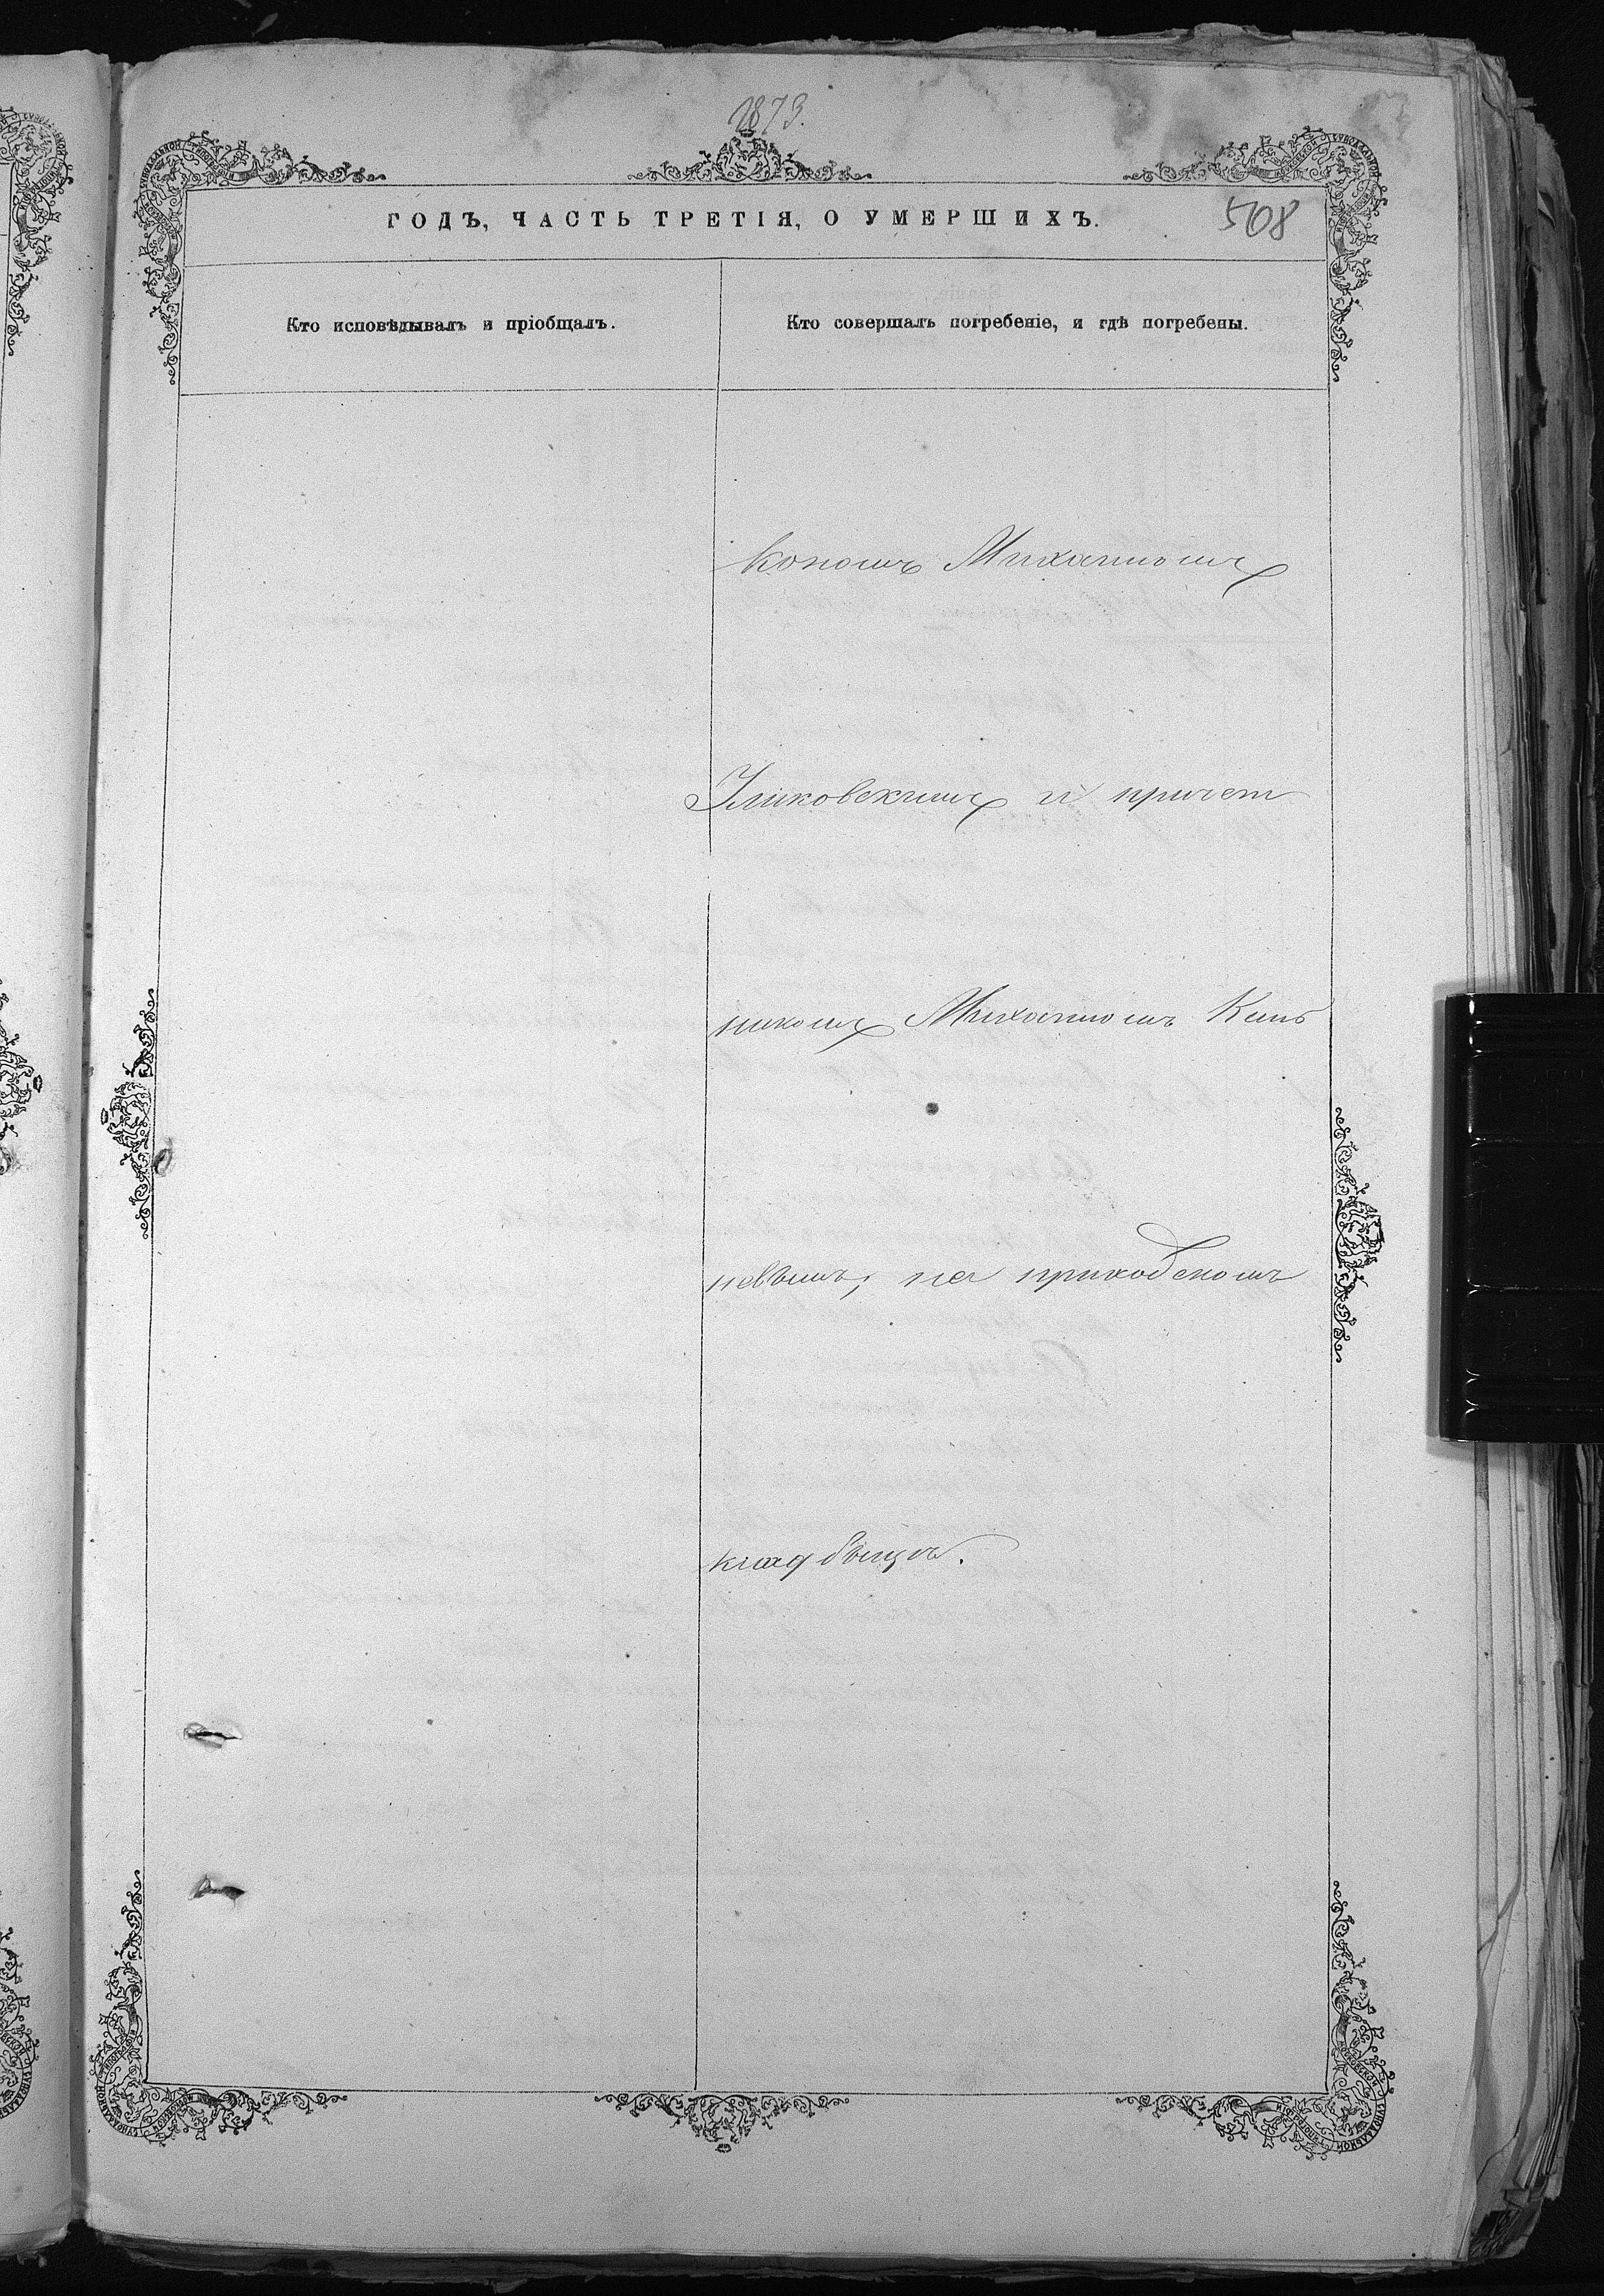 1873.
ГОДЪ, ЧАСТЬ ТРЕТІЯ, О УМЕРШИХЪ.
508
Кто исповѣдывалъ и пріобщалъ.
Кто совершалъ погребеніе, и гдѣ погребены.
кономъ Михаиломъ
и причет
никомъ Михаиломъ Кня
на приходскомъ
кладбищѣ.